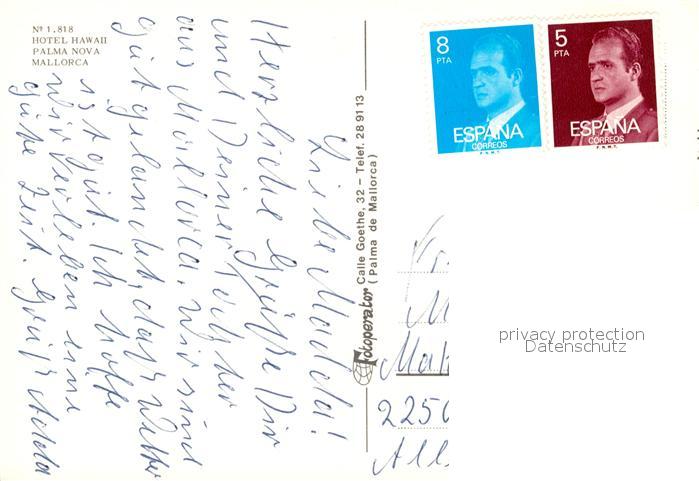 Nº 1.818
HOTEL HAWAII
PALMA NOVA
MALLORCA
Liebe Madda!
Herzliche Grüße Dir
und Deiner Tochter
aus Mallorca. Wir sind
gut gelandet, das Wetter
ist gut. Ich hoffe
wir verleben eine
gute Zeit. Gruß
Fotoperator Calle Goethe, 32 – Telef. 28 91 13
(Palma de Mallorca)
8
PTA
ESPAÑA
CORREOS
F.N.M.T.
5
PTA
ESPAÑA
CORREOS
F.N.M.T.
Fr.
M
Ma
225
All
privacy protection
Datenschutz